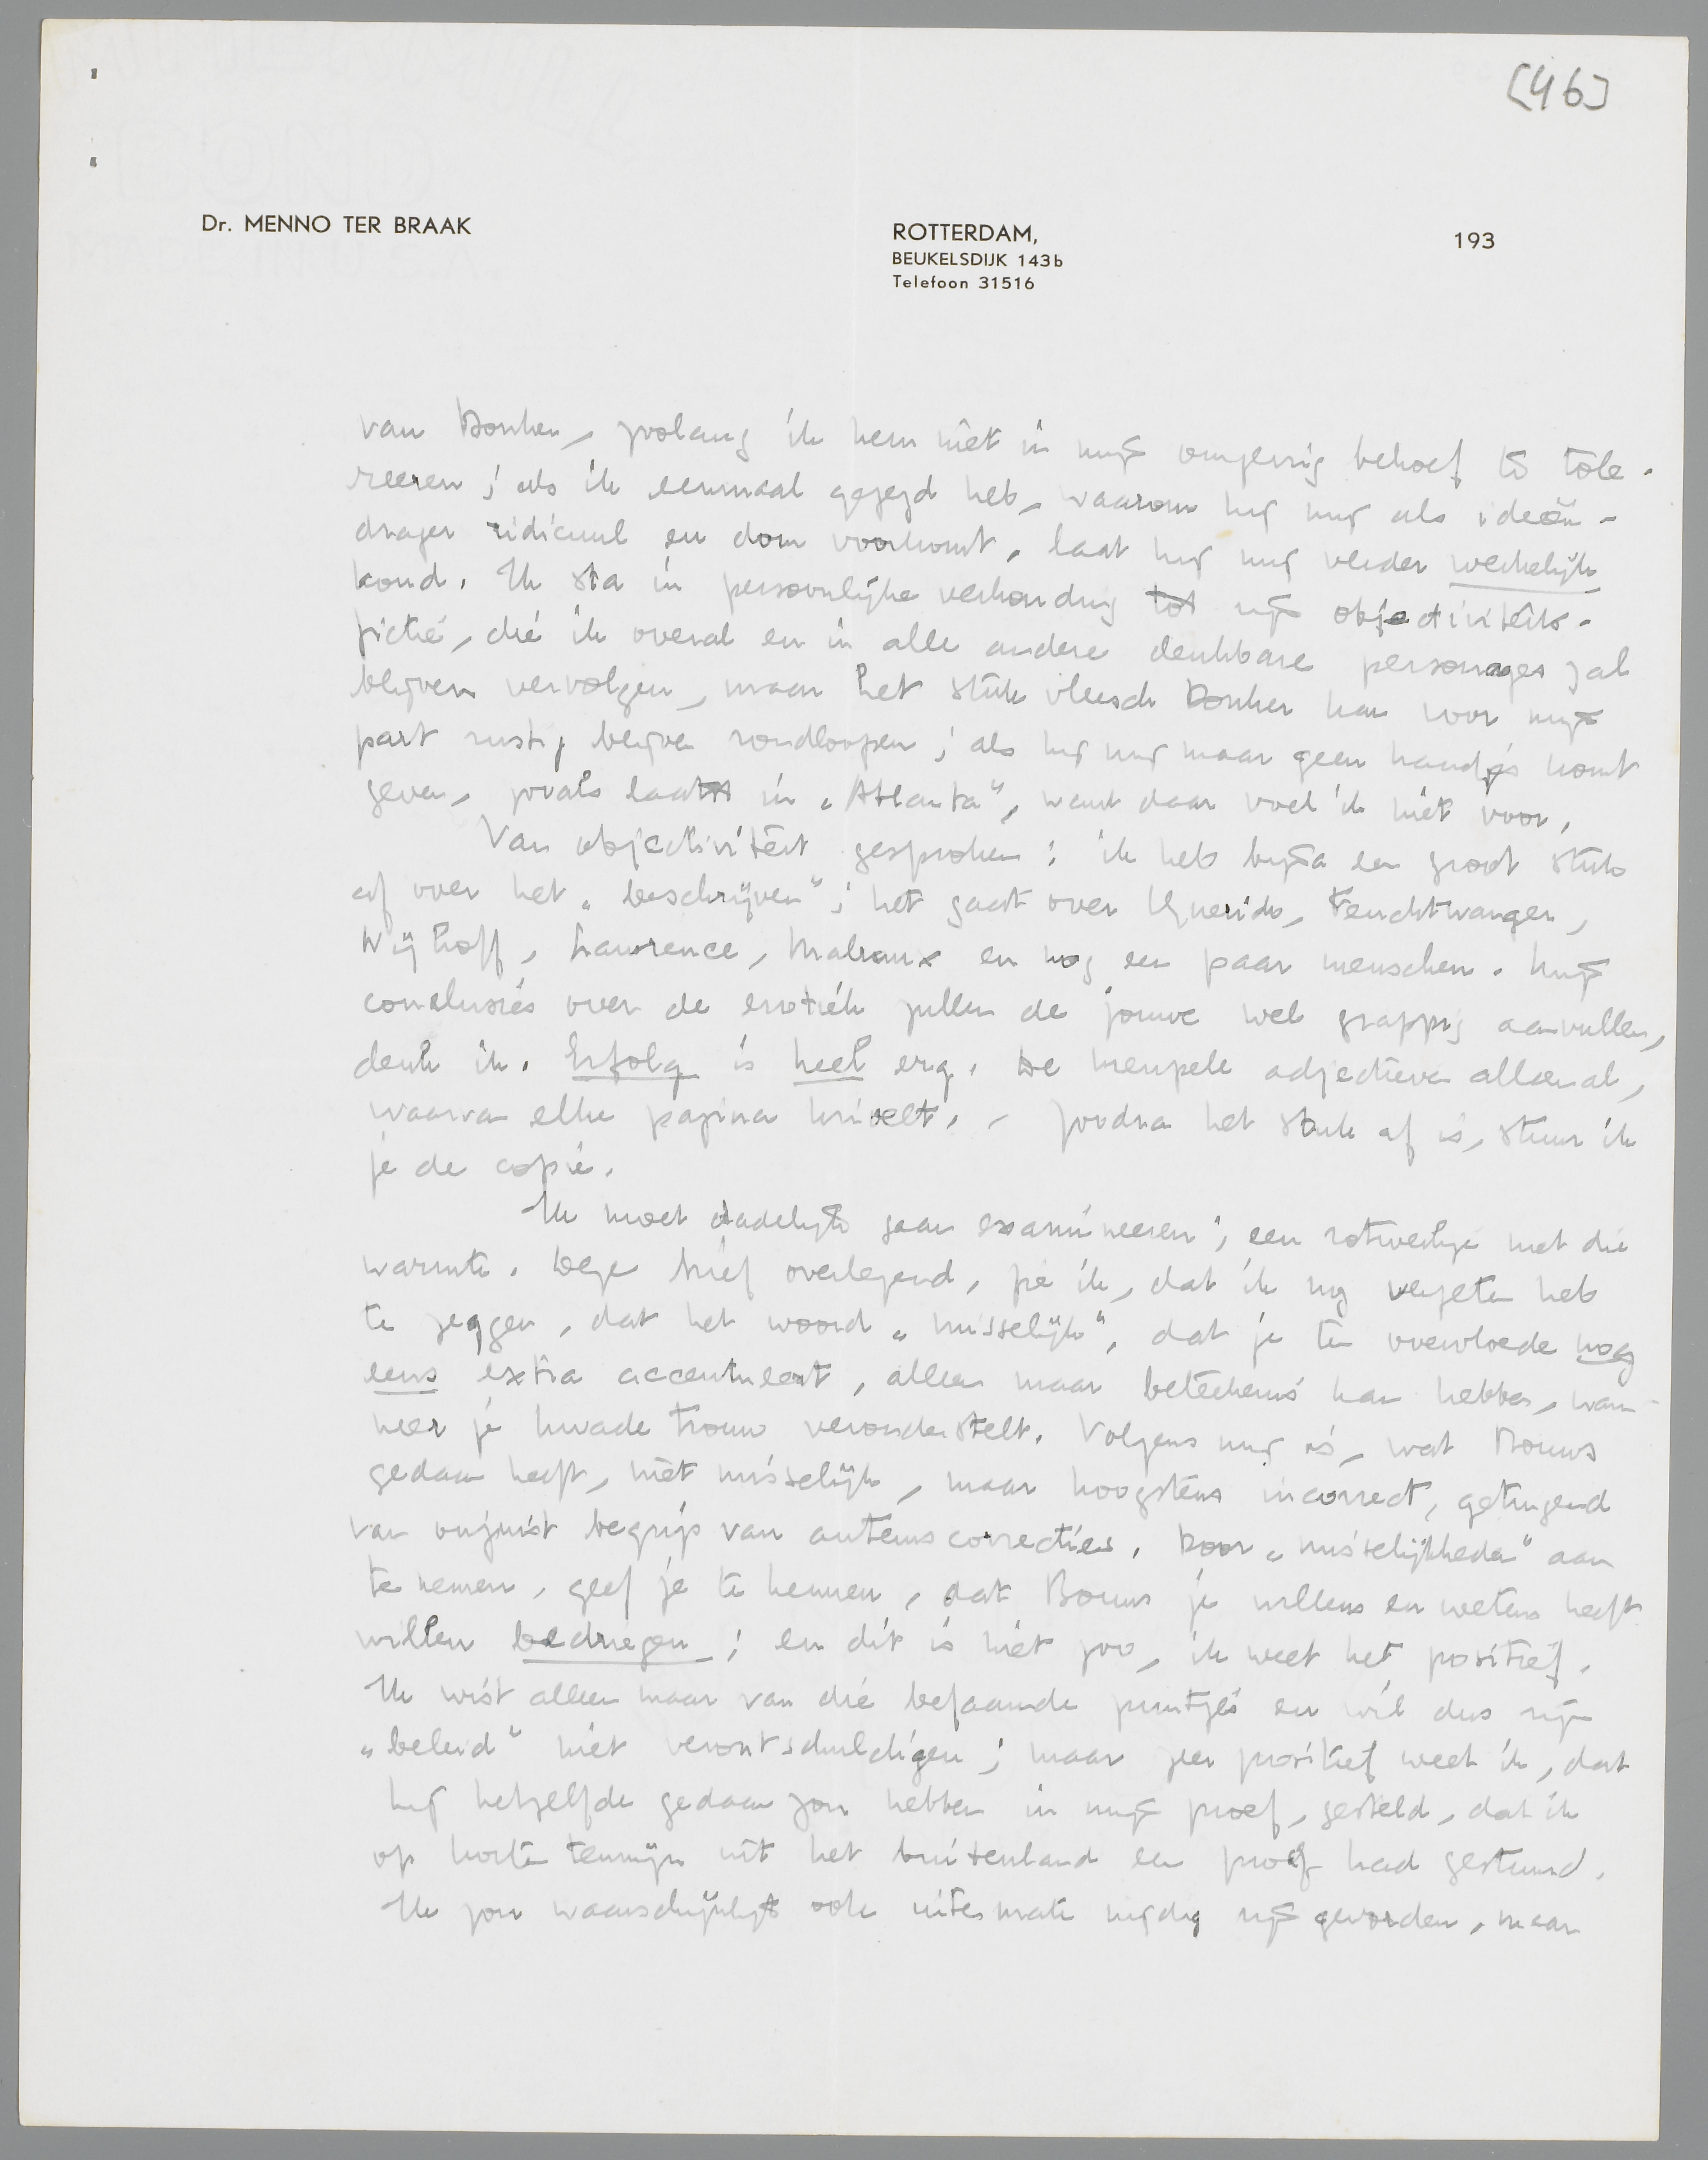 [46]
Dr. MENNO TER BRAAK
ROTTERDAM,
BEUKELSDIJK 143b
Telefoon 31516
193
van Donker, zoolang ik hem niet in mijn omgeving behoef te tole-
reeren; als ik eenmaal gezegd heb, waarom hij mij als ideeën-
drager ridicuul en dom voorkomt, laat hij mij verder werkelijk
koud. Ik sta in persoonlijke verhouding tot zijn objectiviteits-
fictie, die ik overal en in alle andere denkbare personages zal
blijven vervolgen, maar het stuk vleesch Donker kan voor mijn
part rustig blijven rondloopen; als hij mij maar geen handjes komt
geven, zooals laatst in „Atlanta”, want daar voel ik niet voor.
Van objectiviteit gesproken: ik heb bijna een groot stuk
af over het „beschrijven”; het gaat over Querido, Feuchtwanger,
Wijhoff, Lawrence, Malraux en nog een paar menschen. Mijn
conclusies over de erotiek zullen de jouwe wel grappig aanvullen,
denk ik. Erfolg is heel erg. De kreupele adjectieven allemaal,
waarvan elke pagina krioelt. – Zoodra het stuk af is, stuur ik
je de copie.
Ik moet dadelijk gaan examineeren; een rotwerkje met die
warmte. Deze brief overlezend, zie ik, dat ik nog vergeten heb
te zeggen, dat het woord „misselijk”, dat je ten overvloede nog
eens extra accentueert, alleen maar beteekenis kan hebben, wan-
neer je kwade trouw veronderstelt. Volgens mij is, wat Bouws
gedaan heeft, niet misselijk, maar hoogstens incorrect, getuigend
van onjuist begrip van auteurscorrecties. Door „misselijkheden” aan
te nemen, geef je te kennen, dat Bouws je willens en wetens heeft
willen bedriegen; en dit is niet zoo, ik weet het positief.
Ik wist alleen maar van die befaamde puntjes en wil dus zijn
„beleid” niet verontschuldigen; maar zeer positief weet ik, dat
hij hetzelfde gedaan zou hebben in mijn proef, gesteld, dat ik
op korte termijn uit het buitenland een proef had gestuurd.
Ik zou waarschijnlijk ook uitermate nijdig zijn geworden, maar